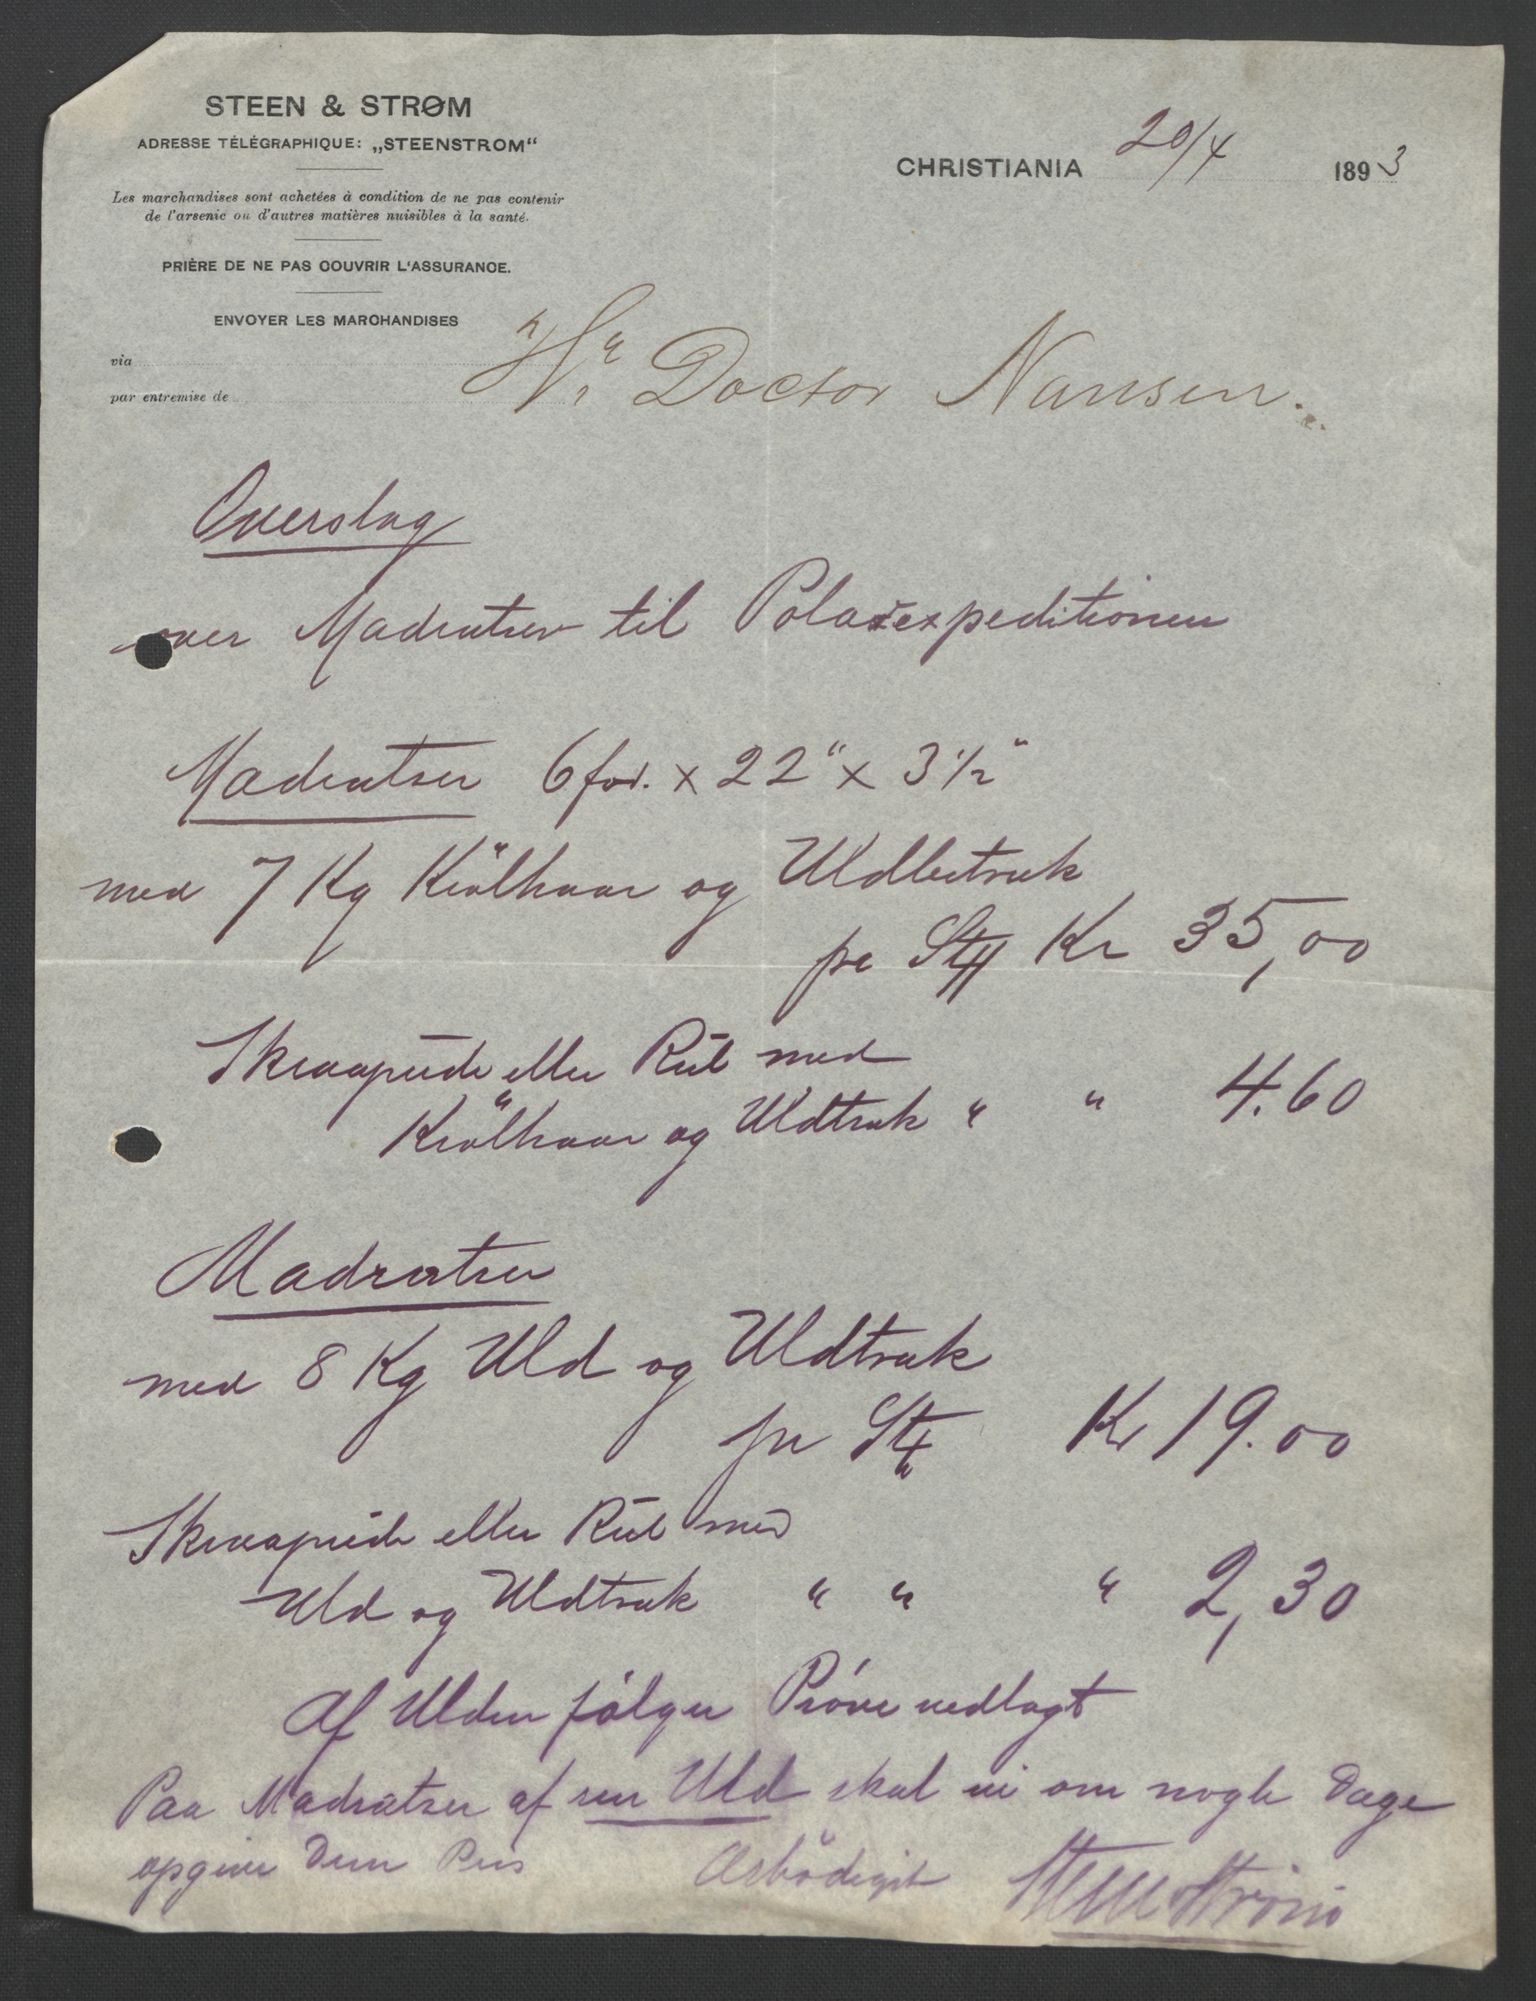 STEEN & STRØM
ADRESSE TÉLÉGRAPHIQUE: „STEENSTROM“
Les marchandises sont achetées à condition de ne pas contenir
de l'arsenic ou d'autres matières nuisibles à la santé.
PRIÈRE DE NE PAS COUVRIR L'ASSURANCE.
ENVOYER LES MARCHANDISES
via
par entremise de
CHRISTIANIA 20/4 1893
Hr Doctor Nansen.
Overslag
over Madratser til Polarexpeditionen
Madratser 6 fod. x 22" x 3 1/2"
med 7 Kg Krölhaar og Uldbetræk
pr Stk Kr 35,00
Skraapude eller Rul med
Krölhaar og Uldtræk " " 4.60
Madratser
med 8 Kg Uld og Uldtræk
pr Stk Kr 19.00
Skraapude eller Rul med
Uld og Uldtræk " " " 2,30
Af Ulden følger Prøve vedlagt
Paa Madratser af ren Uld skal vi om nogle Dage
opgive Dem Pris Ærbödigst Steen & Strøm